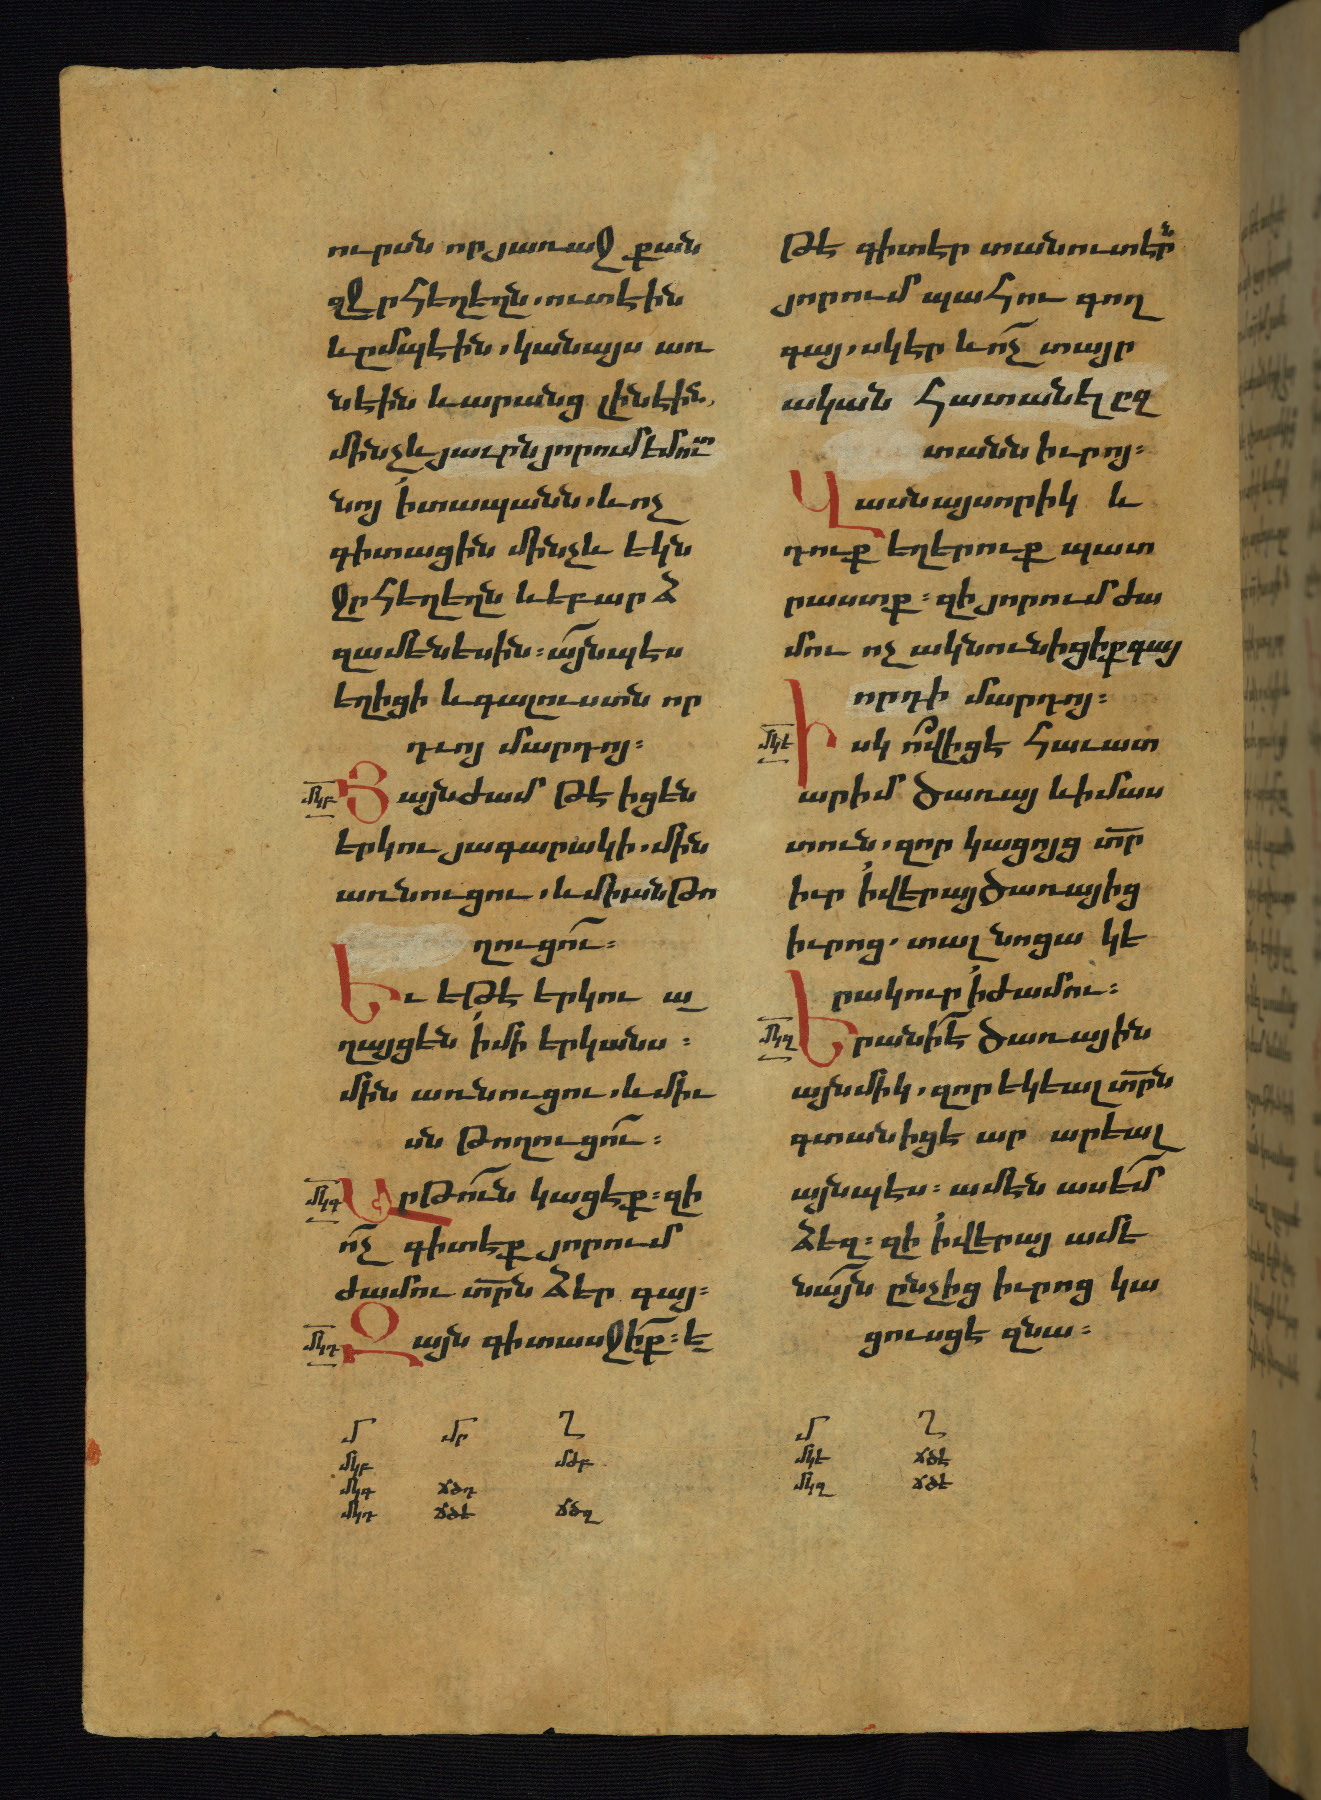 ուրսն որ յառաջ քան
զջրհեղեղն. ուտէին
և ըմպէին. կանայս առ
նէին և արանց լինէին.
մինչև յաւրն յորում եմուտ
նոյ ի տապանն. և ոչ
գիտացին մինչև եկն
ջրհեղեղն և եբարձ
զամենեսին։ ա՟յնպէս
եղիցի և գալուստն որ
դւոյ մարդոյ։
մկբ Յայնժամ թէ իցեն
երկու յագարակի. մին
առնուցու. և միւսն թո
ղուցու՟։
Եւ եթէ երկու ա
ղայցեն ի մի երկանս։
մին առնուցու. և միւ
սն թողուցու՟։
մկգ Արթու՟ն կացէք։ զի
ո՟չ գիտէք յորում
ժամու տ՟րն ձեր գայ։
մկդ Զայն գիտասջի՟ք։ ե
թէ գիտէր տանուտէրն
յորում պահու գող
գայ. սկէր և ո՟չ տայր
ական հատանել ըզ
տանն իւրոյ։
Վասն այսորիկ և
դուք եղերուք պատ
րաստք։ զի յորում ժա
մու ոչ ակն ունիցիք գայ
որդի մարդոյ։
մկե Իսկ ո՟վ իցէ հաւատ
արիմ ծառայ և իմաս
տուն. զոր կացոյց տ՟ր
իւր ի վերայ ծառայից
իւրոց. տալ նոցա կե
րակուր ի ժամու։
մկզ Երանի՟ է ծառային
այնմիկ. զոր եկեալ տ՟րն
գտանիցէ ար արեալ
այնպէս։ ամէն ասե՟մ
ձեզ։ զի ի վերայ ամե
նա՟յն ընչից իւրոց կա
ցուսցէ զնա։
մ մր ղ
մկբ մժբ
մկգ ճծդ
մկդ ճծե ճծզ
մ ղ
մկե ճծէ
մկզ ճծէ